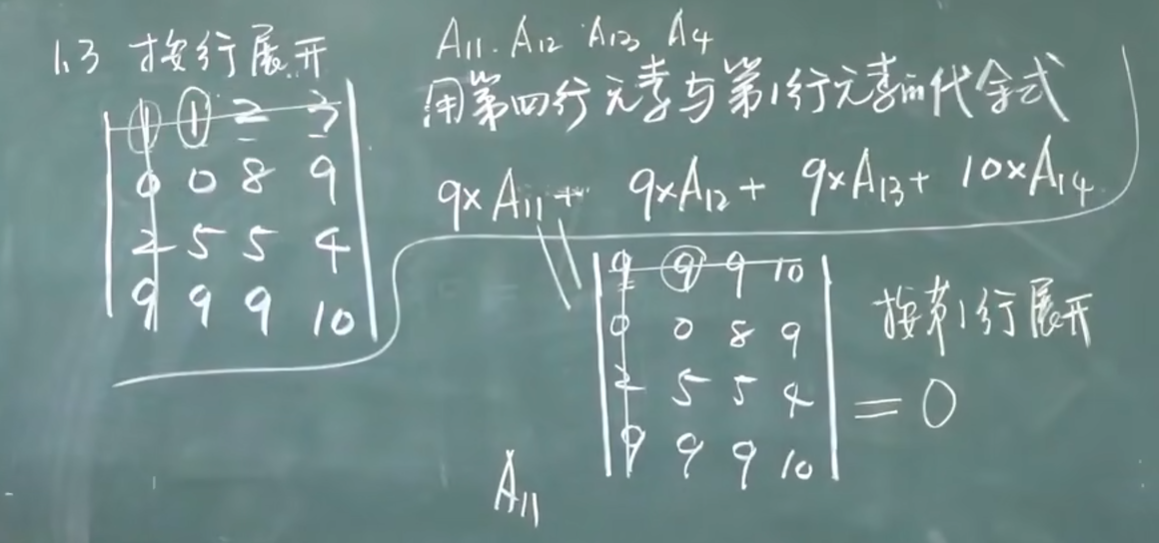 1.3 按行展开
1 1 2 3
0 0 8 9
2 5 5 4
9 9 9 10
A11. A12 A13 A4
用第四行元素与第1行元素的代余式
9×A11+ 9×A12+ 9×A13+ 10×A14
9 9 9 10
0 0 8 9
2 5 5 4
9 9 9 10
按第1行展开
= 0
A11